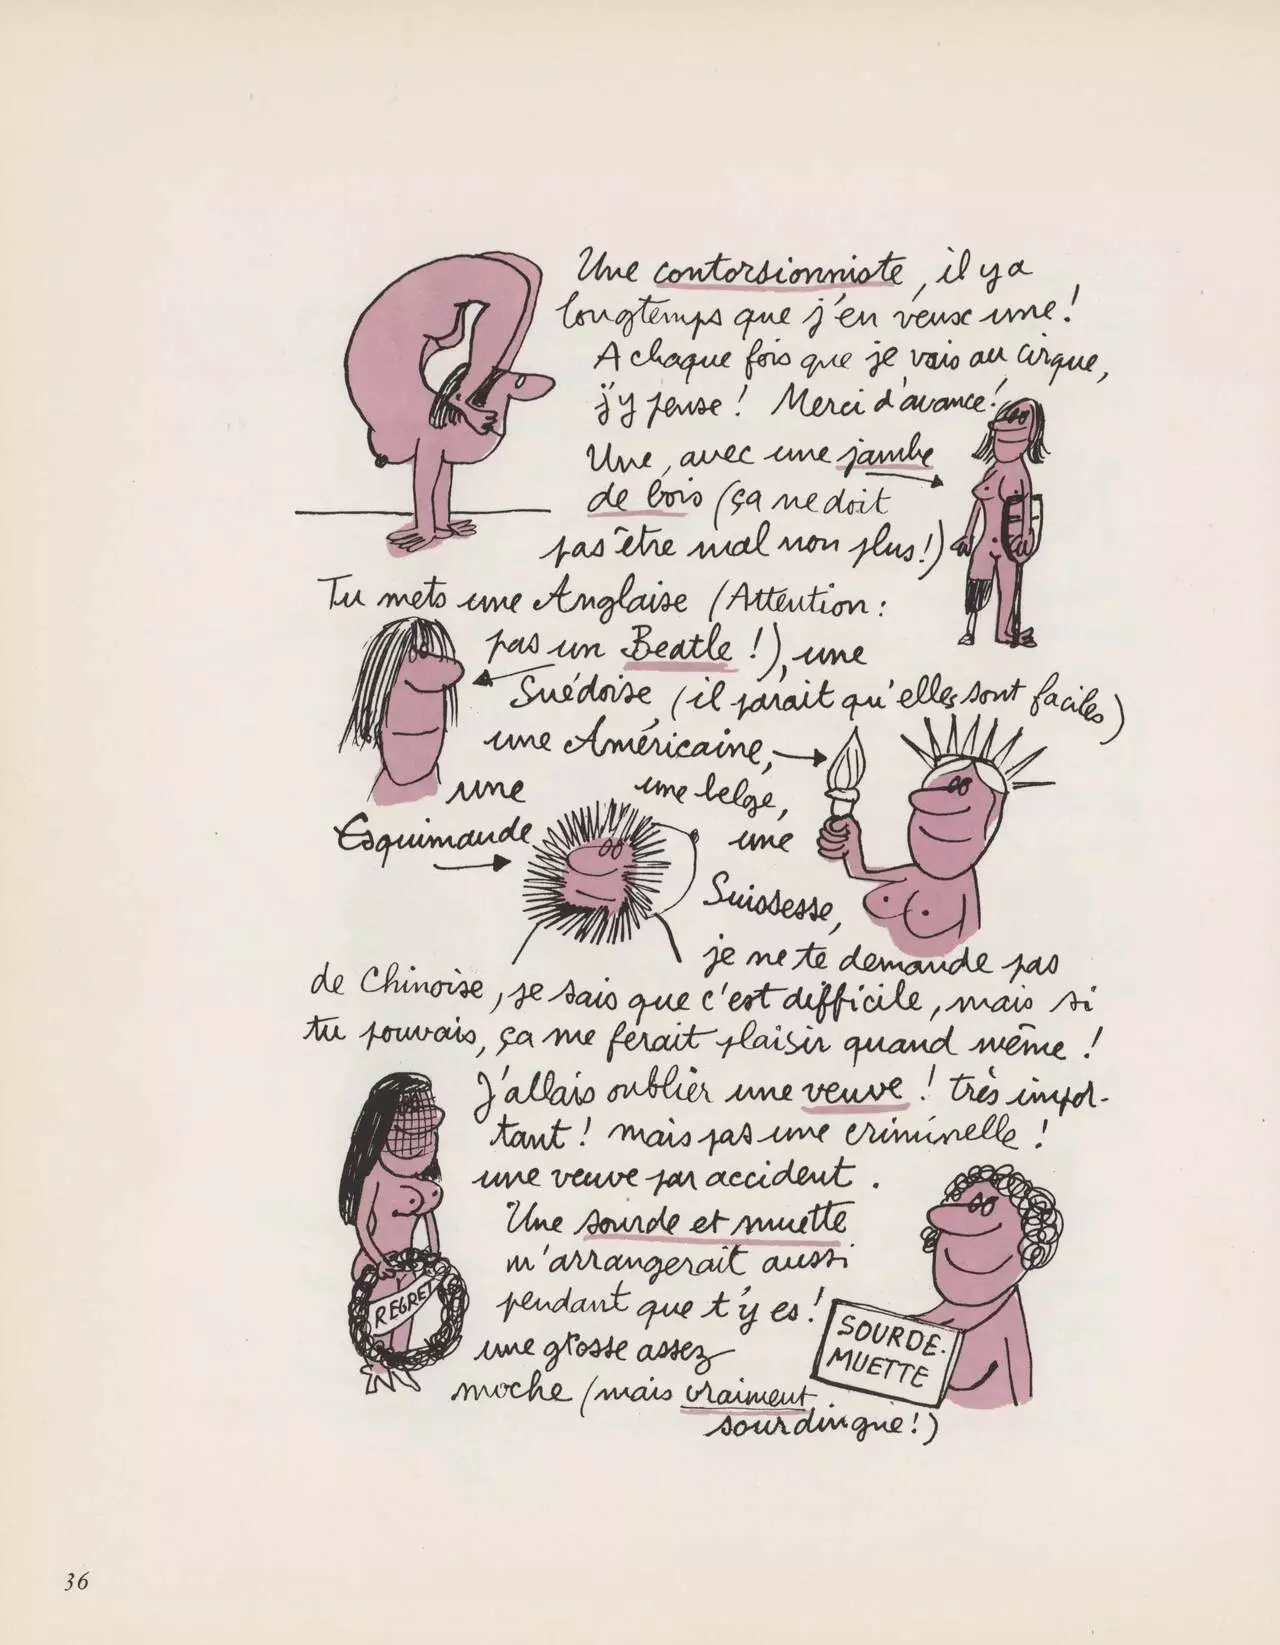 Une contorsionniste, il y a
longtemps que j'en veux une!
A chaque fois que je vais au cirque,
j'y pense! Merci d'avance!
Une, avec une jambe
de bois (ça ne doit
pas être mal non plus!)
Tu mets une Anglaise (Attention:
pas un Beatle!), une
Suédoise, (il paraît qu'elles sont faciles)
une Américaine,
une belge,
une
Esquimaude
une
Suissesse,
je ne te demande pas
de Chinoise, je sais que c'est difficile, mais si
tu pouvais, ça me ferait plaisir quand même!
J'allais oublier une veuve! très impor-
tant! mais pas une criminelle!
une veuve par accident.
Une sourde et muette
m'arrangerait aussi
pendant que t'y es!
REGRET
SOURDE-
MUETTE
une grosse assez
moche (mais vraiment
sourdingue!)
36